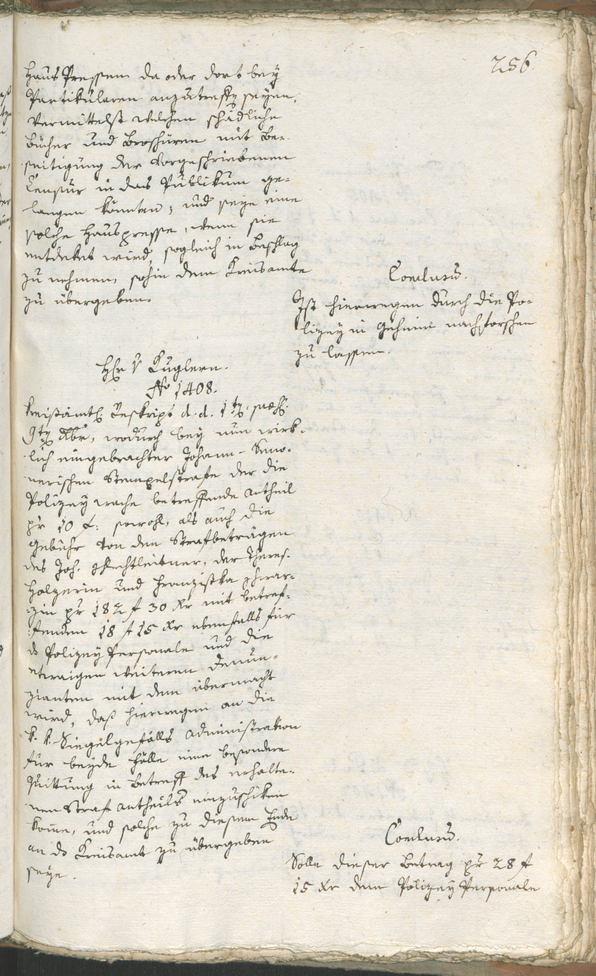 256
Haus Pressen da oder dort bey
Partikularen anzutreffen seyen,
vermittelst welchen schädliche
Bücher und Broshüren mit Be-
seitigung der vorgeschriebenen
Censur in das Publikum ge-
langen könnten; und seye eine
solche Hauspresse, wenn sie
entdeket wird, sogleich in Beschlag
zu nehmen, sohin dem Kreisamte
zu übergeben.
Conclusum.
Ist hierwegen durch die Po-
lizey in Geheim nachforschen
zu lassen.
H. v Kuglern.
No 1408.
Kreisämtl. Reskript d. d. 1t praes.
9t Xbr, wodurch bey nun wirk-
lich eingebrachter Johann
Stempelstrafe der die
Polizey wache betreffende Antheil
pr 10 f. sowohl, als auch die
Gebühr von den Strafbeträgen
des Joh. Knechtleitner, der Theres.
Holzerin und Franziska
pr 182 f 30 Xr mit betref-
fenden 18 f 15 Xr ebenfalls für
das Polizey Personale und die
etwaigen weiteren Denun-
zianten mit dem übermacht
wird, daß hierwegen an die
k. k. Siegelgefälls Administration
für beyde Fälle eine besondere
Quittung in Betreff des erhalte-
nen Straf antheils einzuschiken
komme, und solche zu diesem Ende
an das Kreisamt zu übergeben
seye.
Conclusum.
Solle dieser Betrag pr 28 f
15 Xr dem Polizey Personale